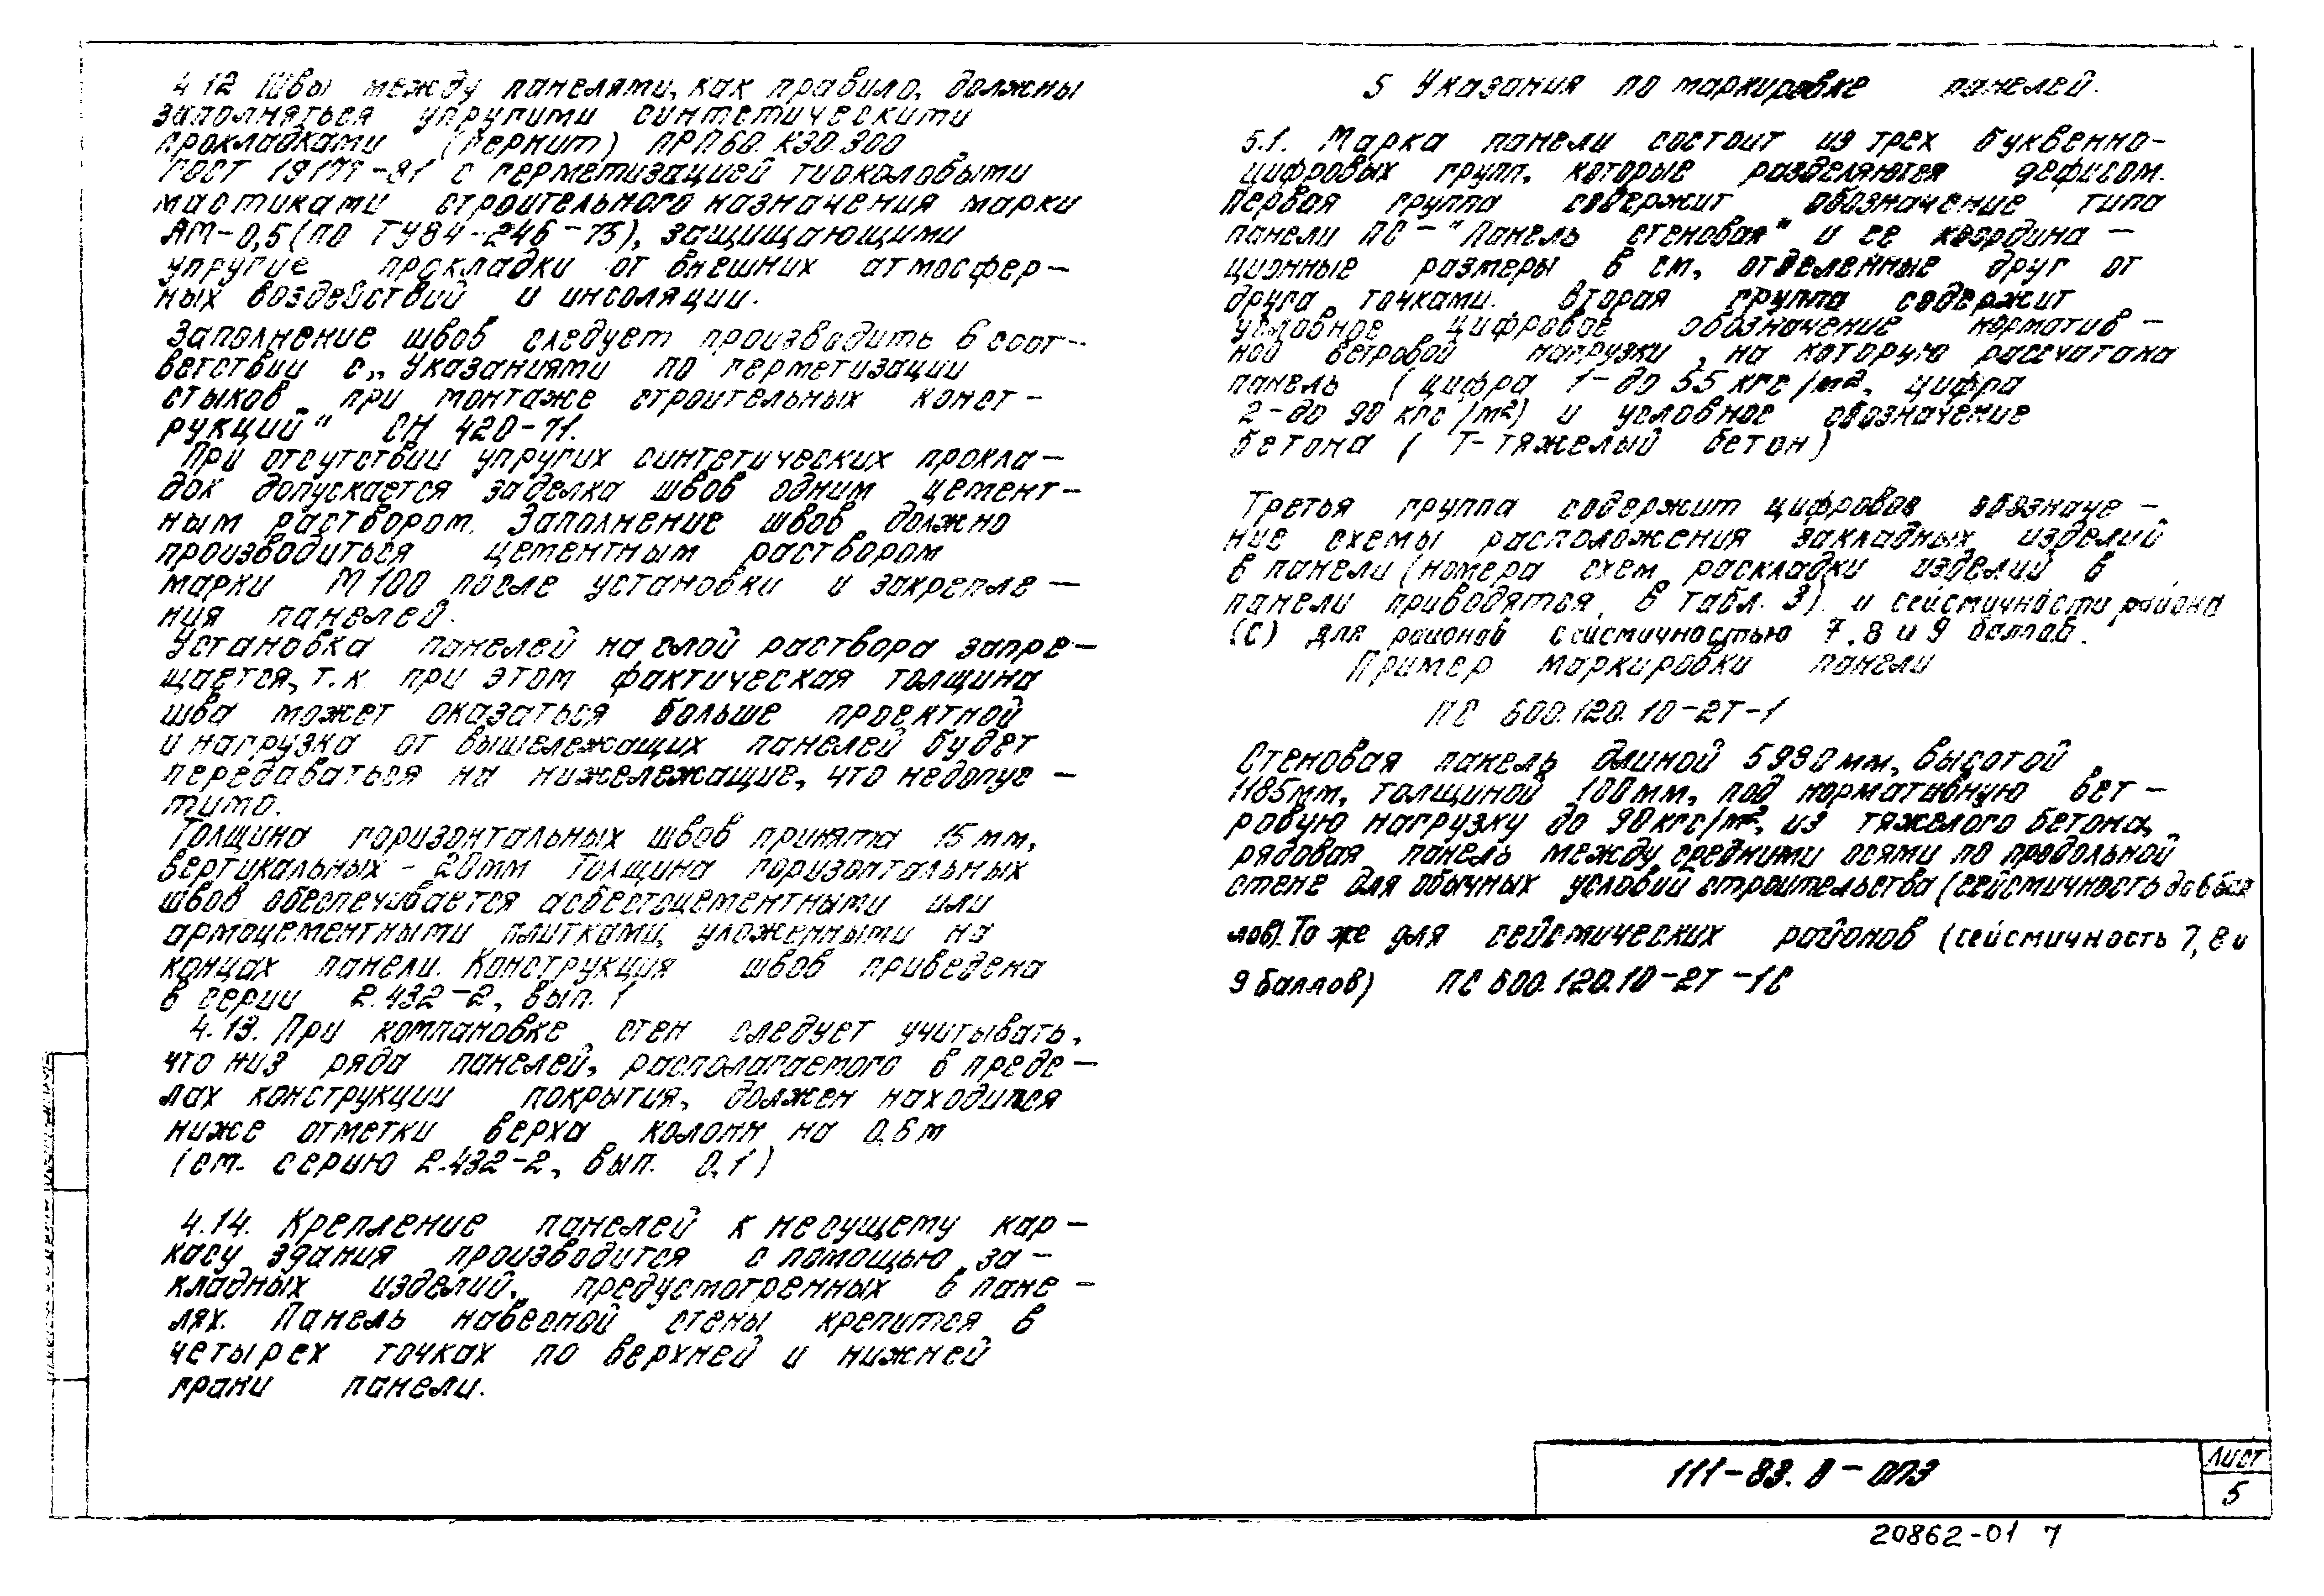 4.12 Швы между панелями, как правило, должны
заполняться упругими синтетическими
прокладками (гернит) ПРП60.К30.300
ГОСТ 19177-81 с герметизацией тиоколовыми
мастиками строительного назначения марки
АМ-0,5 (по ТУ84-246-75), защищающими
упругие прокладки от внешних атмосфер-
ных воздействий и инсоляции.
Заполнение швов следует производить в соот-
ветствии с „Указаниями по герметизации
стыков при монтаже строительных конст-
рукций" СН 420-71.
При отсутствии упругих синтетических прокла-
док допускается заделка швов одним цемент-
ным раствором. Заполнение швов должно
производиться цементным раствором
марки М100 после установки и закрепле-
ния панелей.
Установка панелей на слой раствора запре-
щается, т.к. при этом фактическая толщина
шва может оказаться больше проектной
и нагрузка от вышележащих панелей будет
передаваться на нижележащие, что недопус-
тимо.
Толщина горизонтальных швов принята 15 мм,
вертикальных - 20мм Толщина горизонтальных
швов обеспечивается асбестоцементными или
армоцементными плитками, уложенными на
концах панели. Конструкция швов приведена
в серии 2.432-2, вып. 1
4.13. При компановке стен следует учитывать,
что низ ряда панелей, располагаемого в преде-
лах конструкции покрытия, должен находится
ниже отметки верха колонн на 0,6м
(см. серию 2.432-2, вып. 0,1)
4.14. Крепление панелей к несущему кар-
касу здания производится с помощью за-
кладных изделий, предусмотренных в пане-
лях. Панель навесной стены крепится в
четырех точках по верхней и нижней
грани панели.
5 Указания по маркировке панелей.
5.1. Марка панели состоит из трех буквенно-
цифровых групп, которые разделяются дефисом.
Первая группа содержит обозначение типа
панели ПС-"Панель стеновая" и ее координа-
ционные размеры в см, отделенные друг от
друга точками. Вторая группа содержит
условное цифровое обозначение норматив-
ной ветровой нагрузки, на которую рассчитана
панель (цифра 1-до 55 кгс/м², цифра
2-до 90 кгс/м²) и условное обозначение
бетона (Т-тяжелый бетон)
Третья группа содержит цифровое обозначе-
ние схемы расположения закладных изделий
в панели (номера схем раскладки изделий в
панели приводятся в табл. 3) и сейсмичности района
(С) для районов сейсмичностью 7, 8 и 9 баллов.
Пример маркировки панели
ПС 600.120.10-2Т-1
Стеновая панель длиной 5980мм, высотой
1185мм, толщиной 100мм, под нормативную вет-
ровую нагрузку до 90 кгс/м², из тяжелого бетона,
рядовая панель между средними осями по продольной
стене для обычных условий строительства (сейсмичность до 6 бал
лов). То же для сейсмических районов (сейсмичность 7, 8 и
9 баллов) ПС 600.120.10-2Т-1С
111-83.0-ОПЗ
Лист
5
20862-01 7